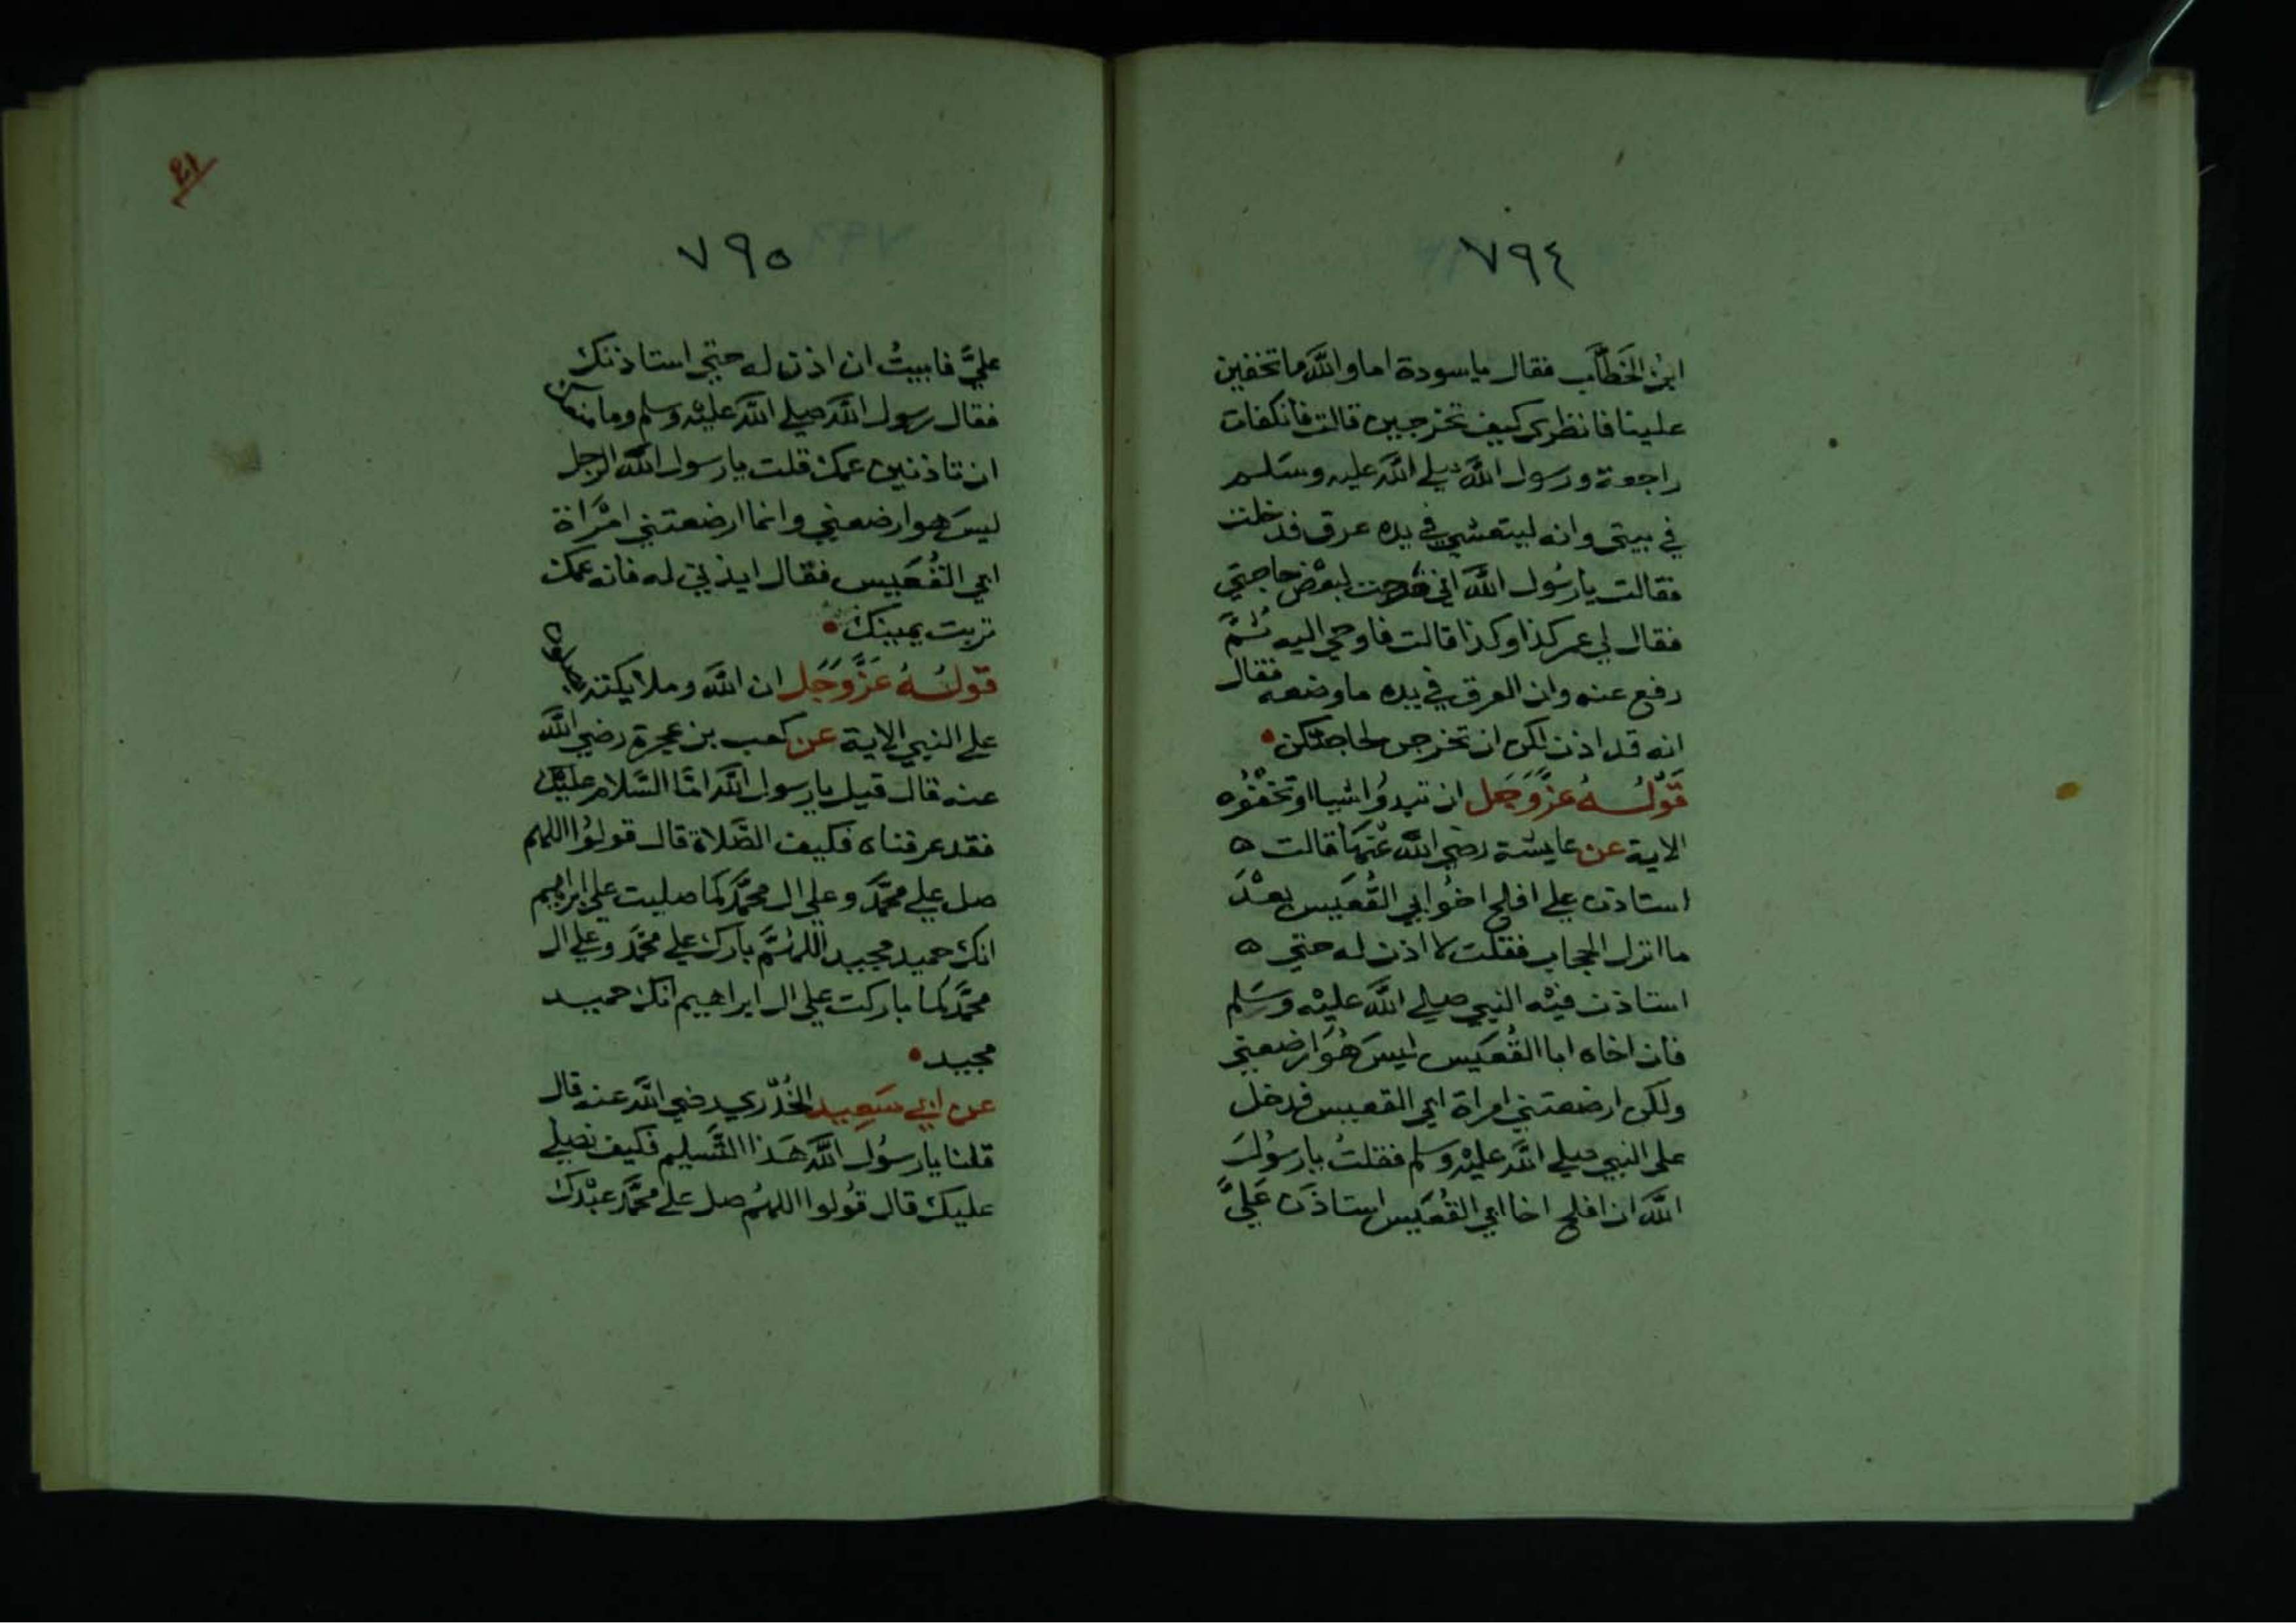 ٧٩٤
ابن الخَطَّاب فقال ياسودة اما والله ما تخفين
علينا فانظري كيف تخرجين قالت فانكفات
راجعة ورسول الله صلي الله عليه وسلم
في بيتي وانه ليتعشي في يده عرق فدخلت
فقالت يا رسُول الله اني خرجت لبعض حاجتي
فقال لي عمر كذا وكذا قالت فاوحي اليه ثُمَّ
رفع عنه وان العرق في يده ما وضعه فقال
انه قد اذن لكن ان تخرجن لحاجتكن
قَوْلُهُ عزَّوَجَل ان تبدوُا شيا او تخفوُه
الاية عن عايشة رضي الله عَنهَا قالت ه
استاذن علي افلح اخوُ ابي القُعَيس بعْدَ
ما انزل الحجاب فقلت لا اذن له حتي ه
استاذن فيْه النبي صلي الله عليْه وسَلم
فان اخاه ابا القُعَيس ليسَ هُوَ ارضعني
ولكن ارضعتني امراة ابي القعيس فدخل
علي النبي صلي الله عليْه وسلم فقلتُ يا رسوُلَ
الله ان افلح اخا ابي القُعَيس استاذَن عَليَّ
٧٩٥
عليَّ فابيتُ ان اذن له حتي استاذنك
فقال رسول الله صلي الله عليْه وسلم وما منعك
ان تاذنين عمك قلت يا رسول الله الرجل
ليسَ هو ارضعني وانما ارضعتني امْرَاة
ابي القُعَيس فقال ايذني له فانه عمك
تربت يمينك
قَولُهُ عَزَّوَجَل ان الله وملايكته يصلون
علي النبي الاية عن كعب بن عجرة رضي الله
عنه قال قيل يا رسول الله امَّا السَّلام عليْك
فقد عرفناه فكيف الصَّلاة قال قولوُا اللهم
صل علي محمَّد وعلي ال محمَّد كما صليت علي ابراهيم
انك حميد مجيد اللهُمَّ بارك علي محمَّد وعلي ال
محمَّد كما باركت علي ال ابراهيم انك حميد
مجيد
عن ابي سَعِيد الخُدْري رضي الله عنه قال
قلنا يا رسُول الله هَذا التَّسليم فكيف نصلي
عليك قال قُولوا اللهُم صل علي محمَّد عبْدك